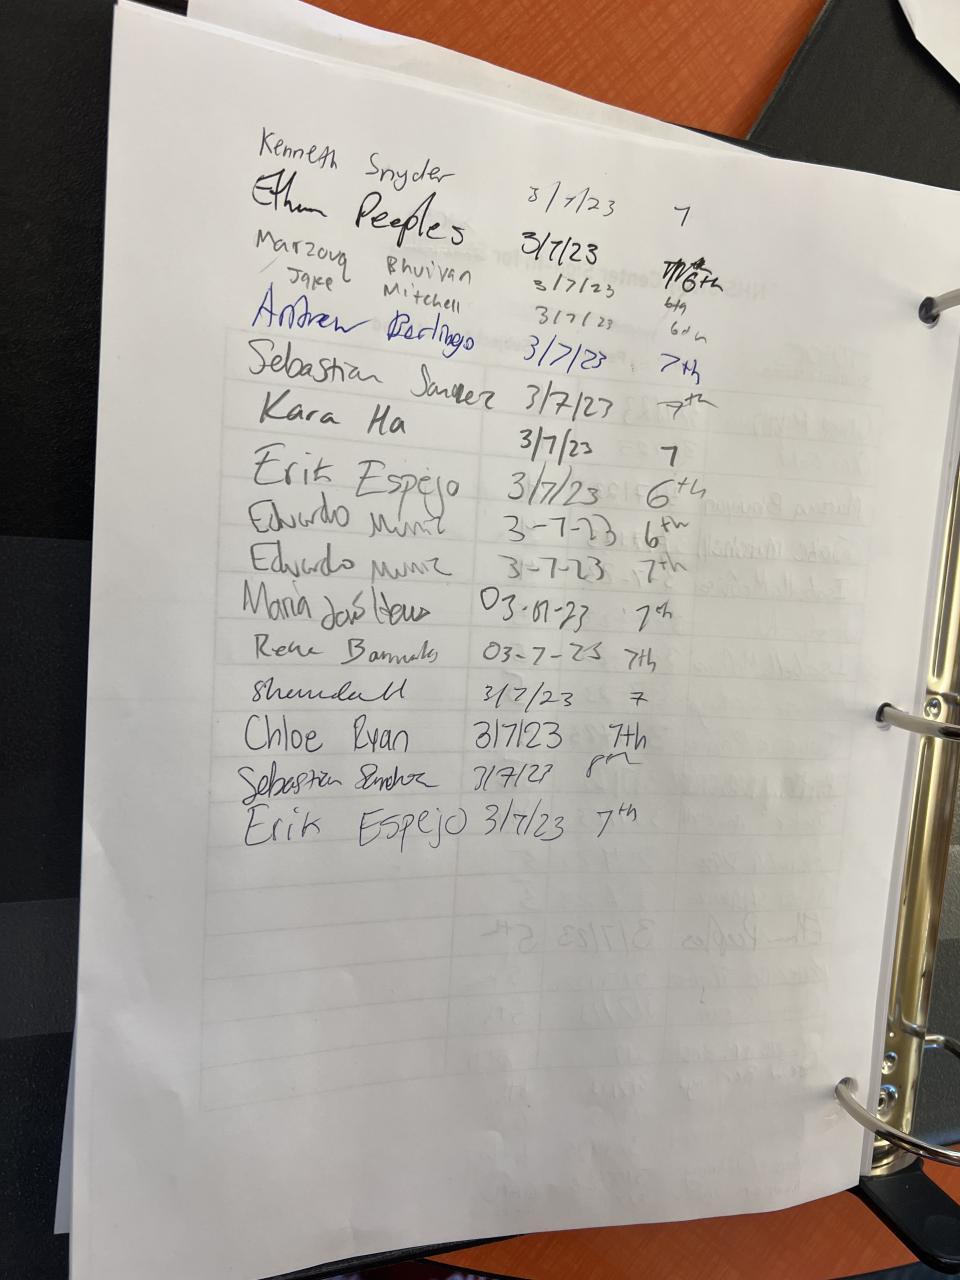 Kenneth Snyder 3/7/23 7
Ethan Peeples 3/7/23 6th
Marzouq Bhuiyan 3/7/23 6th
Jake Mitchell 3/7/23 6th
Andrew 3/7/23 7th
Sebastian Sanchez 3/7/23 7th
Kara Ha 3/7/23 7
Erik Espejo 3/7/23 6th
Eduardo Muniz 3-7-23 6th
Eduardo Muniz 3-7-23 7th
Maria José 03-07-23 7th
03-7-23 7th
3/7/23 7
Chloe Ryan 3/7/23 7th
Sebastian Sanchez 3/7/23
Erik Espejo 3/7/23 7th